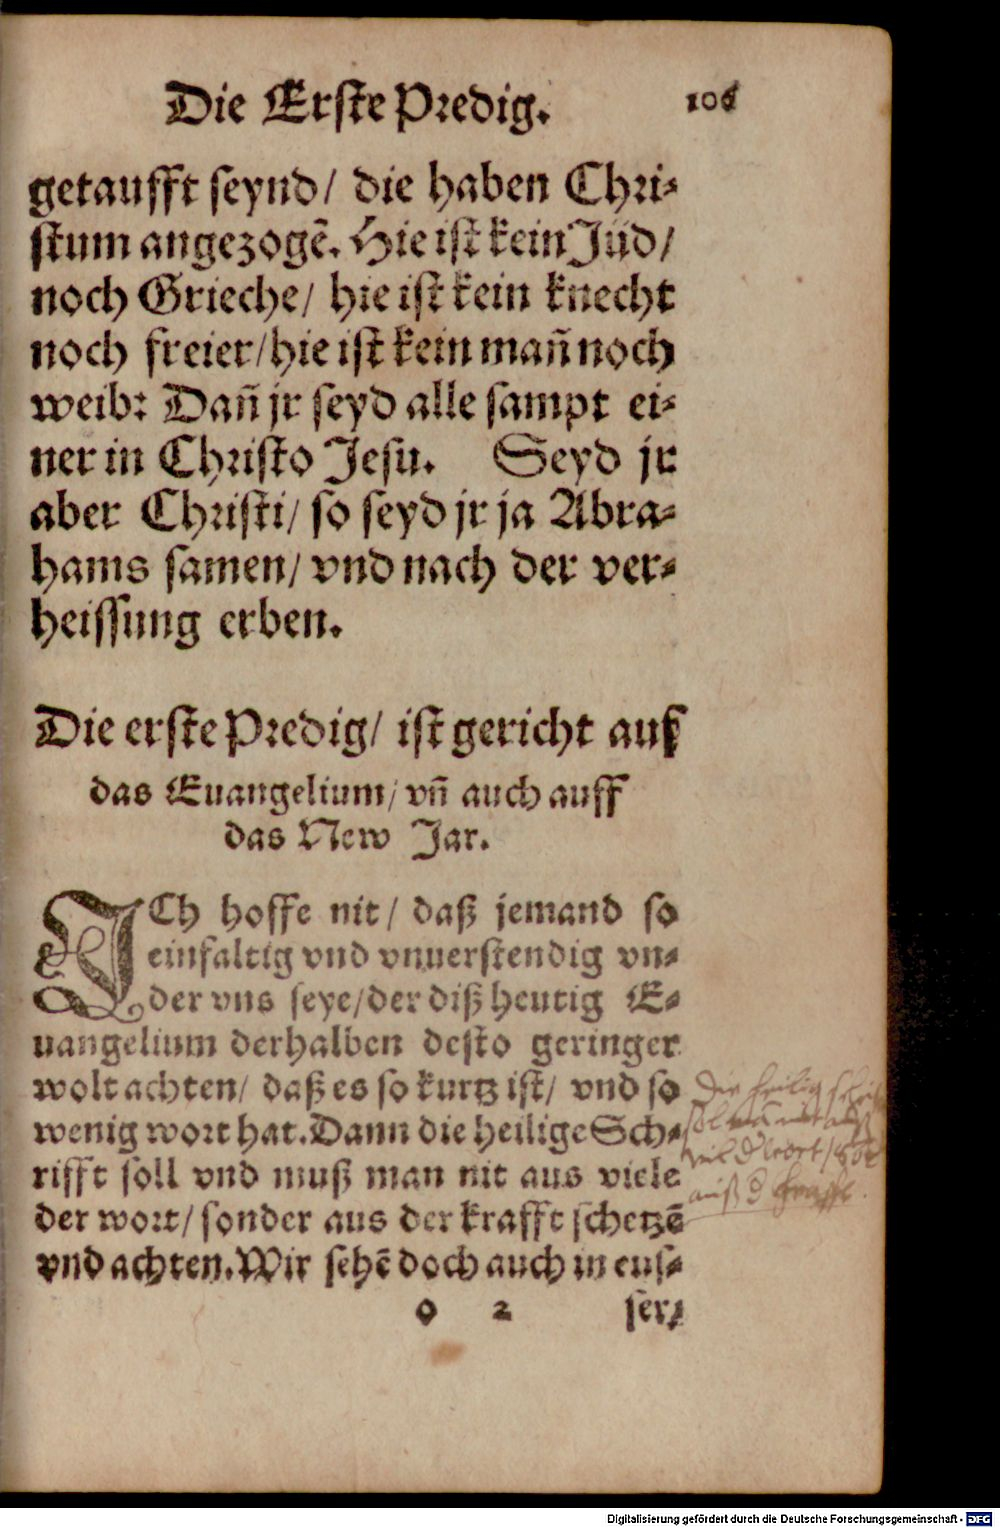 Die Erste Predig. 106
getaufft seynd/ die haben Chri-
stum angezogē. Hie ist kein Jüd/
noch Grieche/ hie ist kein knecht
noch freier/hie ist kein mañ noch
weib: Dañ jr seyd alle sampt ei-
ner in Christo Jesu. Seyd jr
aber Christi/ so seyd jr ja Abra-
hams samen/ vnd nach der ver-
heissung erben.
Die erste Predig/ ist gericht auf
das Euangelium/ vñ auch auff
das New Jar.
ICh hoffe nit/ daß jemand so
einfaltig vnd vnuerstendig vn-
der vns seye/der diß heutig E-
uangelium derhalben desto geringer
wolt achten/ daß es so kurtz ist/ vnd so
wenig wort hat. Dann die heilige Sch-
rifft soll vnd muß man nit aus viele
der wort/ sonder aus der krafft schetzē
vnd achten. Wir sehē doch auch in eus-
o 2 ser-
Die heilig
soll
vil d wort/
auß d krafft.
Digitalisierung gefördert durch die Deutsche Forschungsgemeinschaft - DFG